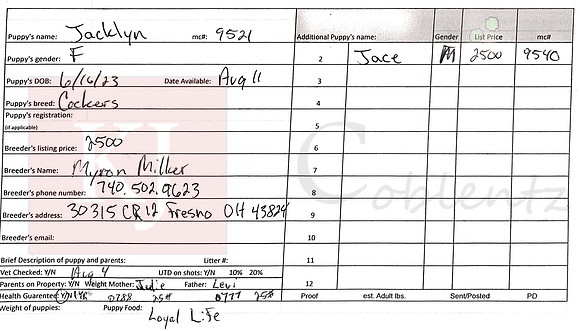 Puppy's name: Jacklyn mc#: 9521 Additional Puppy's name: Gender List Price mc#
Puppy's gender: F 2 Jace M 2500 9540
Puppy's DOB: 6/16/23 Date Available: Aug 11 3
Puppy's breed: Cockers 4
Puppy's registration:
(if applicable) 5
Breeder's listing price: 2500 6
Breeder's Name: Myron Miller 7
Breeder's phone number: 740.502.9623 8
Breeder's address: 30315 CR 12 Fresno OH 43824 9
Breeder's email: 10
Brief Description of puppy and parents: Litter #: 11
Vet Checked: Y/N Aug 4 UTD on shots: Y/N 10% 20%
Parents on Property: Y/N Weight Mother: Julie Father: Levi 12
Health Guarenteed Y/N 1YR 0788 25# 0777 25# Proof est. Adult lbs. Sent/Posted PD
Weight of puppies: Puppy Food: Loyal Life
KJ Coblentz